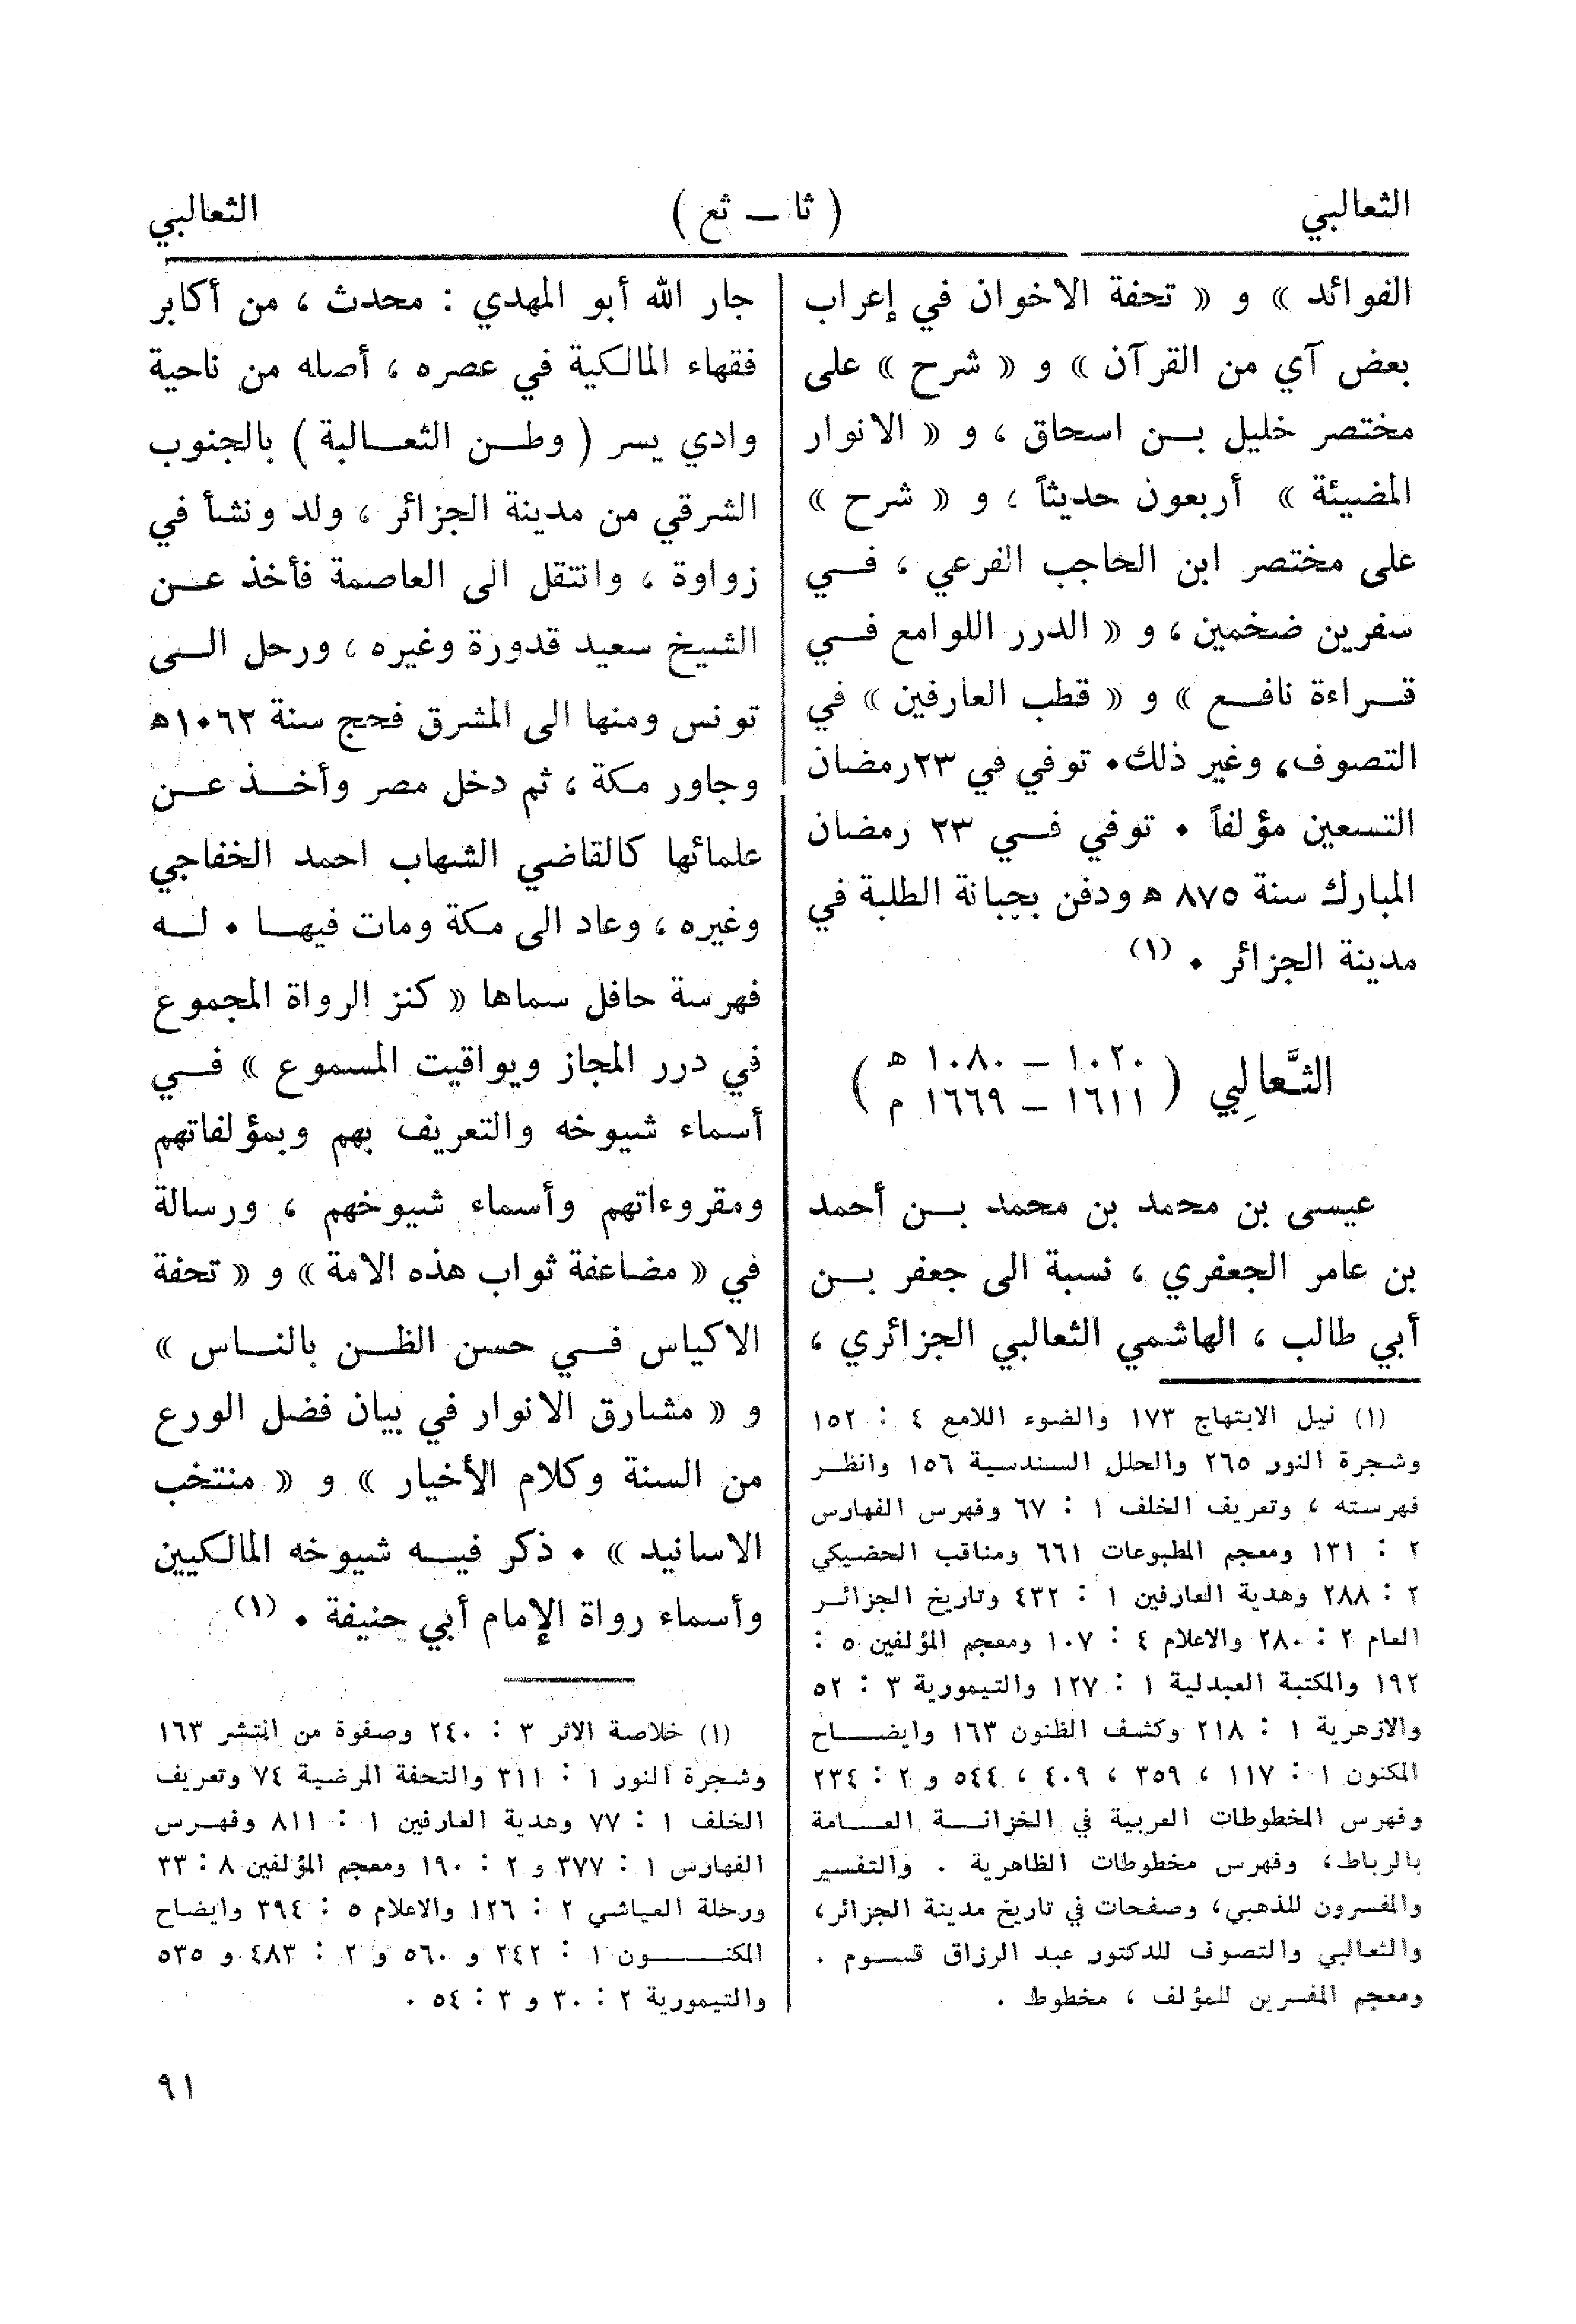 الثعالبي
( ثا — ثع )
الثعالبي
الفوائد » و « تحفة الاخوان في إعراب
بعض آي من القرآن » و « شرح » على
مختصر خليل بن اسحاق ، و « الانوار
المضيئة » أربعون حديثاً ، و « شرح »
على مختصر ابن الحاجب الفرعي ، في
سفرين ضخمين ، و « الدرر اللوامع في
قراءة نافع » و « قطب العارفين » في
التصوف، وغير ذلك. توفي في ٢٣رمضان
التسعين مؤلفاً . توفي في ٢٣ رمضان
المبارك سنة ٨٧٥ هـ ودفن بجبانة الطلبة في
مدينة الجزائر . (١)
الثَّعالِبي ( ١٠٢٠ – ١٠٨٠ هـ
١٦١١ – ١٦٦٩ م )
عيسى بن محمد بن محمد بن أحمد
بن عامر الجعفري ، نسبة الى جعفر بن
أبي طالب ، الهاشمي الثعالبي الجزائري ،
(١) نيل الابتهاج ١٧٣ والضوء اللامع ٤ : ١٥٢
وشجرة النور ٢٦٥ والحلل السندسية ١٥٦ وانظر
فهرسته ، وتعريف الخلف ١ : ٦٧ وفهرس الفهارس
٢ : ١٣١ ومعجم المطبوعات ٦٦١ ومناقب الحضيكي
٢ : ٢٨٨ وهدية العارفين ١ : ٤٣٢ وتاريخ الجزائر
العام ٢ : ٢٨٠ والاعلام ٤ : ١٠٧ ومعجم المؤلفين ٥ :
١٩٢ والمكتبة العبدلية ١ : ١٢٧ والتيمورية ٣ : ٥٢
والازهرية ١ : ٢١٨ وكشف الظنون ١٦٣ وايضاح
المكنون ١ : ١١٧ ، ٣٥٩ ، ٤٠٩ ، ٥٤٤ و ٢ : ٢٣٤
وفهرس المخطوطات العربية في الخزانة العامة
بالرباط، وفهرس مخطوطات الظاهرية . والتفسير
والمفسرون للذهبي، وصفحات في تاريخ مدينة الجزائر،
والثعالبي والتصوف للدكتور عبد الرزاق قسوم .
ومعجم المفسرين للمؤلف ، مخطوط .
جار الله أبو المهدي : محدث ، من أكابر
فقهاء المالكية في عصره ، أصله من ناحية
وادي يسر ( وطن الثعالبة ) بالجنوب
الشرقي من مدينة الجزائر ، ولد ونشأ في
زواوة ، وانتقل الى العاصمة فأخذ عن
الشيخ سعيد قدورة وغيره ، ورحل الى
تونس ومنها الى المشرق فحج سنة ١٠٦٢هـ
وجاور مكة ، ثم دخل مصر وأخذ عن
علمائها كالقاضي الشهاب احمد الخفاجي
وغيره ، وعاد الى مكة ومات فيها . له
فهرسة حافل سماها « كنز الرواة المجموع
في درر المجاز ويواقيت المسموع » في
أسماء شيوخه والتعريف بهم وبمؤلفاتهم
ومقروءاتهم وأسماء شيوخهم ، ورسالة
في « مضاعفة ثواب هذه الامة » و « تحفة
الاكياس في حسن الظن بالناس »
و « مشارق الانوار في بيان فضل الورع
من السنة وكلام الأخيار » و « منتخب
الاسانيد » . ذكر فيه شيوخه المالكيين
وأسماء رواة الإمام أبي حنيفة . (١)
(١) خلاصة الاثر ٣ : ٢٤٠ وصفوة من انتشر ١٦٣
وشجرة النور ١ : ٣١١ والتحفة المرضية ٧٤ وتعريف
الخلف ١ : ٧٧ وهدية العارفين ١ : ٨١١ وفهرس
الفهارس ١ : ٣٧٧ و ٢ : ١٩٠ ومعجم المؤلفين ٨ : ٣٣
ورحلة العياشي ٢ : ١٢٦ والاعلام ٥ : ٣٩٤ وايضاح
المكنون ١ : ٢٤٢ و ٥٦٠ و ٢ : ٤٨٣ و ٥٣٥
والتيمورية ٢ : ٣٠ و ٣ : ٥٤ .
٩١